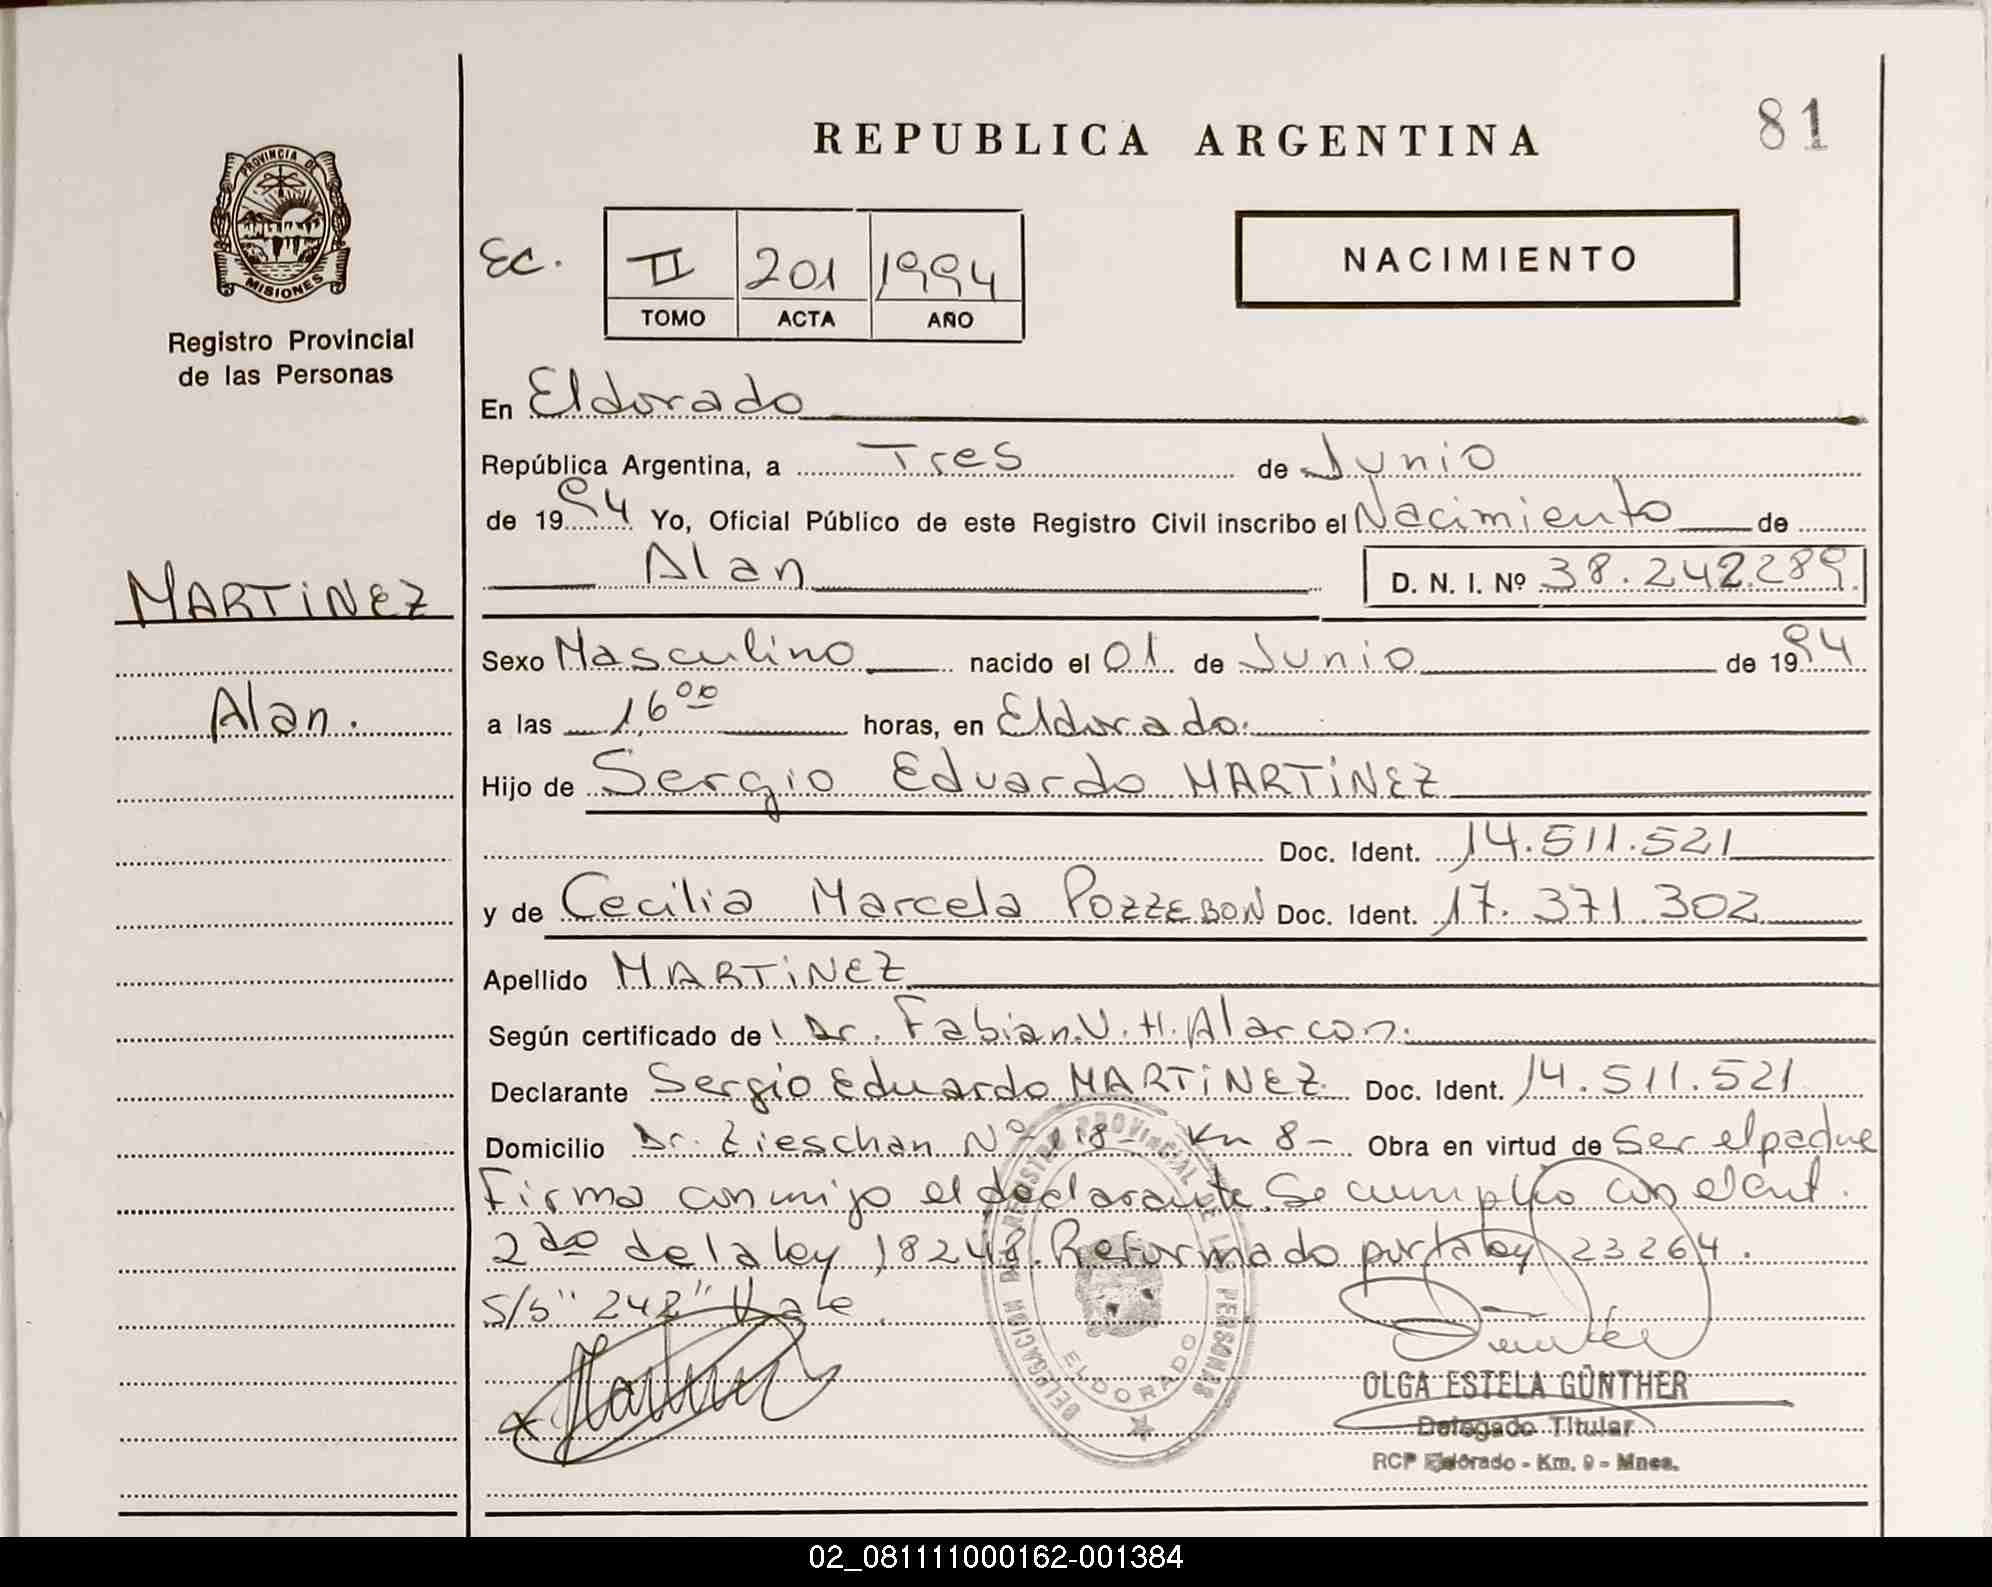 81
REPUBLICA ARGENTINA
PROVINCIA DE
MISIONES
Registro Provincial
de las Personas
Ec.
II 201 1994
TOMO ACTA AÑO
NACIMIENTO
En Eldorado
República Argentina, a Tres de Junio
de 1994 Yo, Oficial Público de este Registro Civil inscribo el Nacimiento de
Alan D. N. I. Nº 38.242.289.
MARTiNEZ
Alan.
Sexo Masculino nacido el 01 de Junio de 1994
a las 16,00 horas, en Eldorado.
Hijo de Sergio Eduardo MARTiNEZ
Doc. Ident. 14.511.521
y de Cecilia Marcela POZZEBON Doc. Ident. 17.371.302
Apellido MARTiNEZ
Según certificado de Dr. Fabian V. H. Alarcon.
Declarante Sergio Eduardo MARTiNEZ. Doc. Ident. 14.511.521
Domicilio Dr. Zieschan Nº 118- Km 8- Obra en virtud de Ser el padre
Firma conmijo el declarante. Se cumplio con el art.
2do de la ley 18248. Reformado por la ley 23264.
S/b "242" Vale.
DELEGACION DEL REGISTRO PROVINCIAL DE LAS PERSONAS
ELDORADO
OLGA ESTELA GÜNTHER
Delegado Titular
RCP Eldorado - Km. 9 - Mnes.
02_081111000162-001384